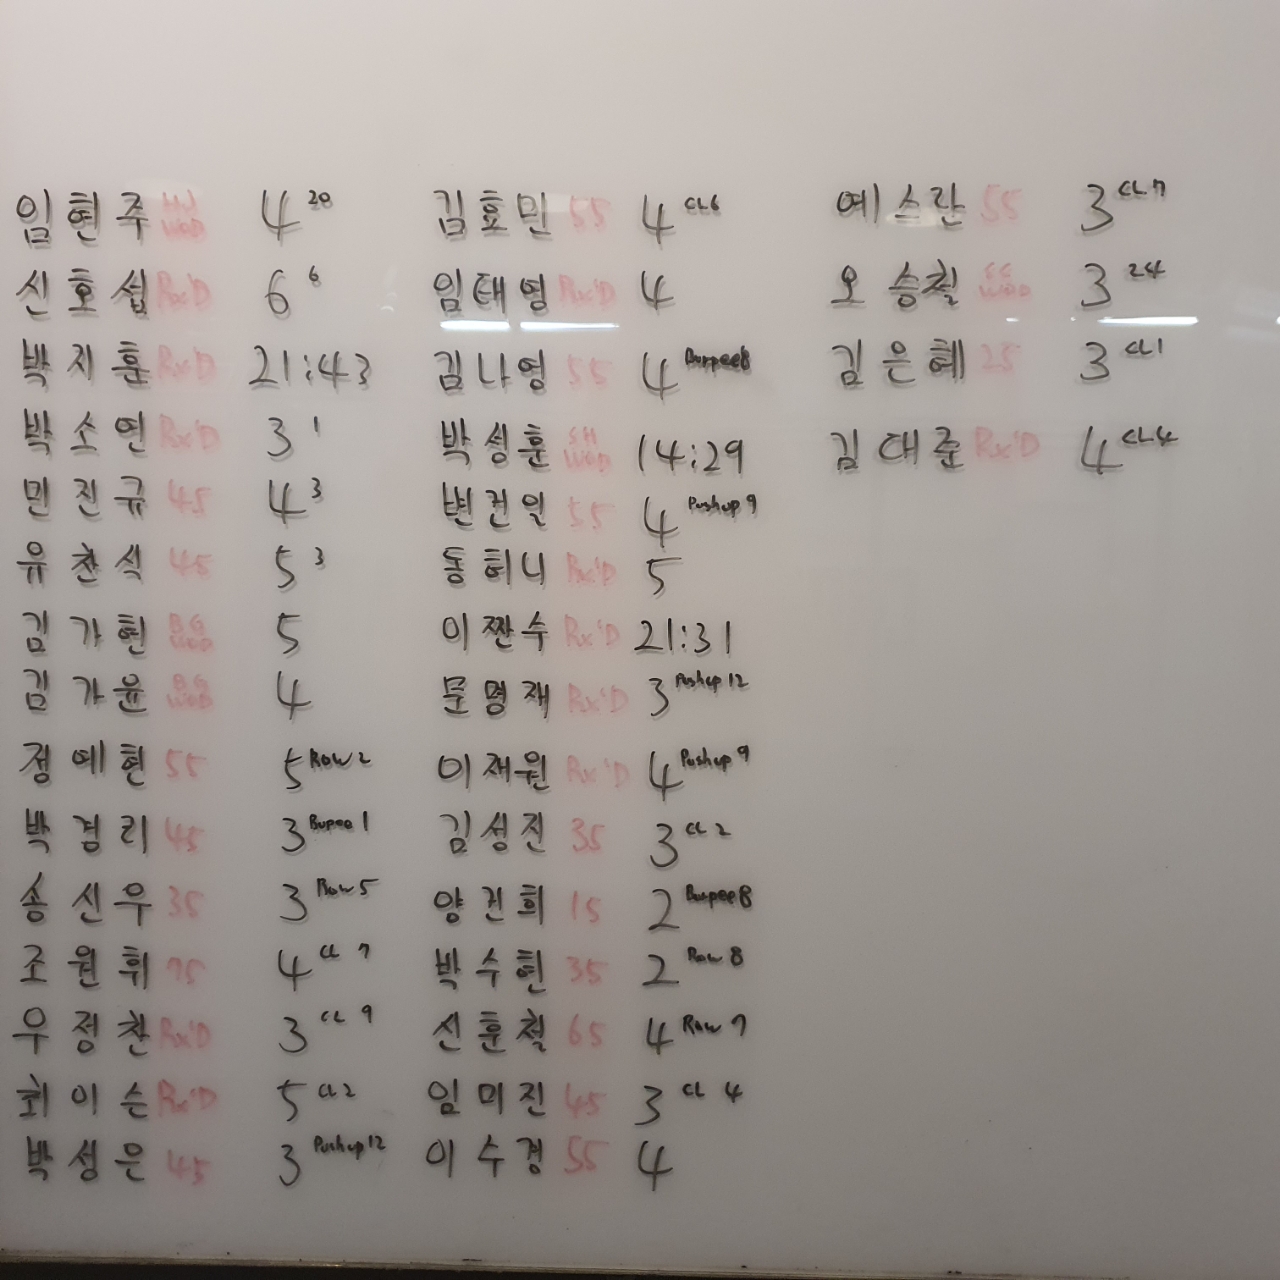 임현주 HJ WOD 4 20
신호섭 Rx'D 6 6
박지훈 Rx'D 21:43
박소연 Rx'D 3 1
민진규 45 4 3
유찬식 45 5 3
김가현 BG WOD 5
김가윤 BG WOD 4
정예현 55 5 Row 2
박겸리 45 3 Bupee 1
송신우 35 3 Row 5
조원휘 75 4 CL 7
우정찬 Rx'D 3 CL 9
최이슨 Rx'D 5 CL 2
박성은 45 3 Push up 12
김효민 55 4 CL 6
임태영 Rx'D 4
김나영 55 4 Burpee 8
박성훈 SH WOD 14:29
변건일 55 4 Push up 9
동허니 Rx'D 5
이짠수 Rx'D 21:31
문명재 Rx'D 3 Push up 12
이재원 Rx'D 4 Push up 9
김성진 35 3 CL 2
양건희 15 2 Burpee 8
박수현 35 2 Row 8
신훈철 65 4 Row 7
임미진 45 3 CL 4
이수경 55 4
예스란 55 3 CL 7
오승철 SC WOD 3 24
김은혜 25 3 CL 1
김대준 Rx'D 4 CL 4